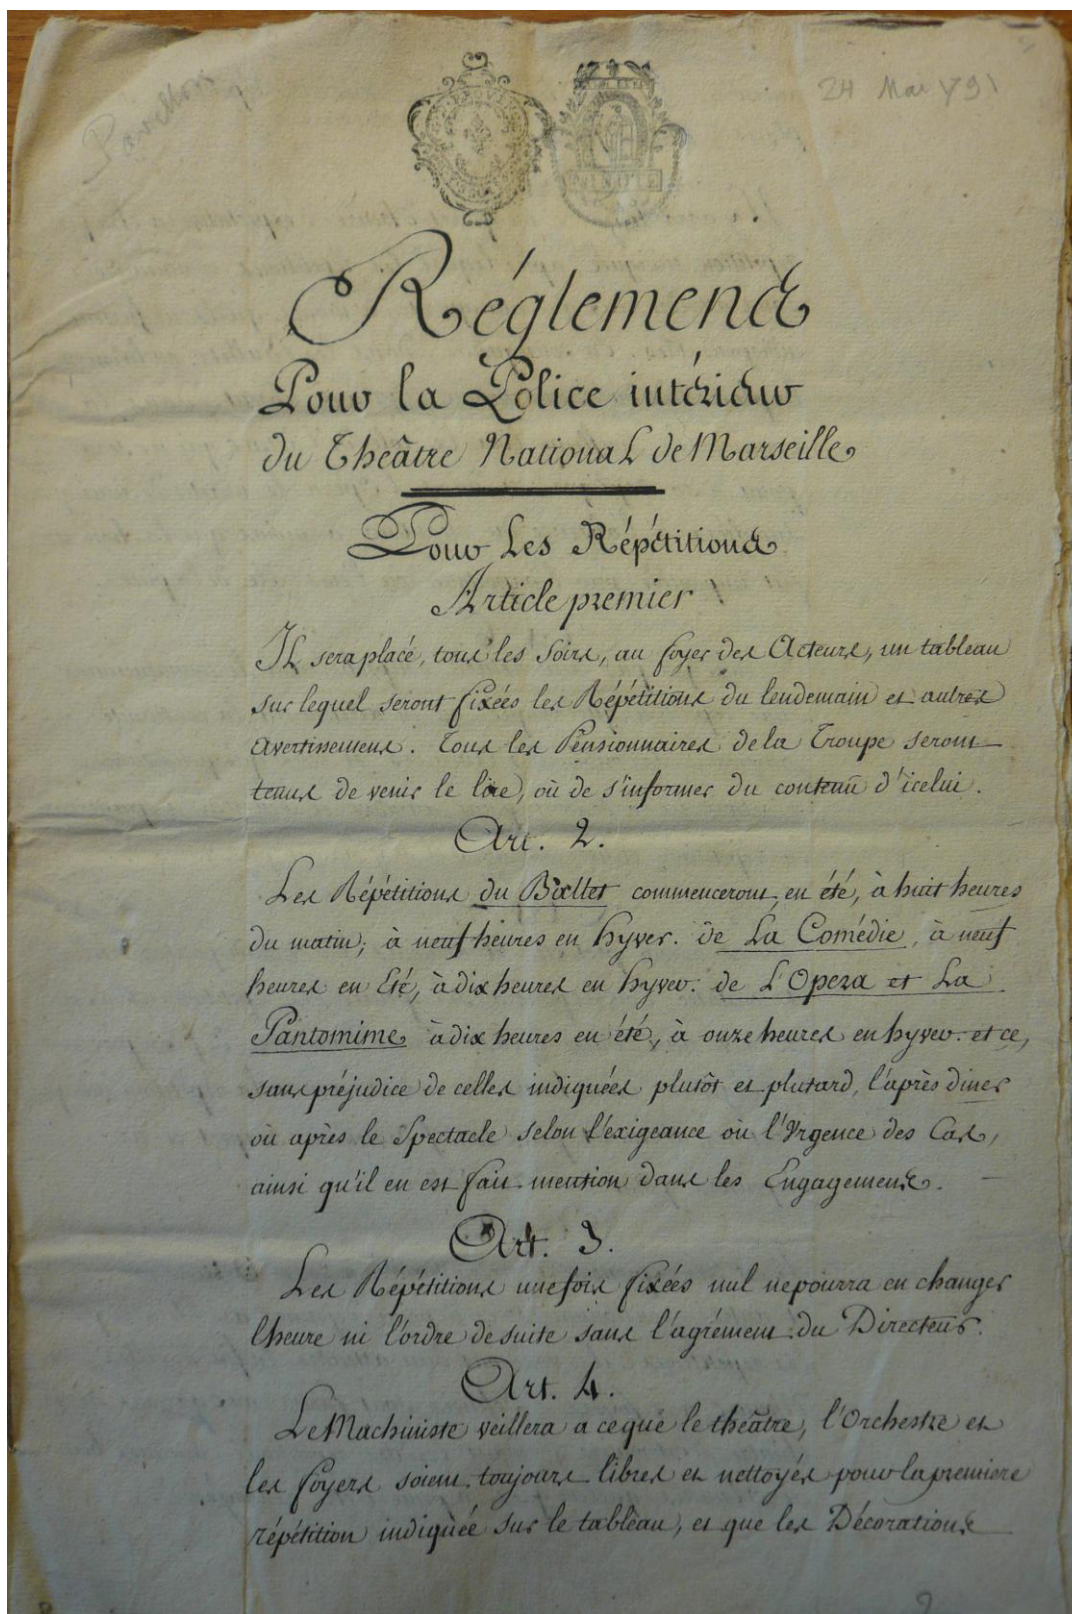 Pavillon
24 Mai 791
MINUTE
Réglement
Pour la Police intérieur
du Théâtre National de Marseille
Pour Les Répétitions
Article premier
Il sera placé, tous les soirs, au foyer des Acteurs, un tableau
sur lequel seront fixées les Répétitions du lendemain et autres
avertissemens. Tous les Pensionnaires de la Troupe seront
tenus de venir le lire, où de s'informer du contenu d'icelui.
Art. 2.
Les Répétitions du Ballet commenceront, en été, à huit heures
du matin; à neuf heures en hyver. de La Comédie, à neuf
heures en Eté, à dix heures en hyver. de L'Opera et La
Pantomime, à dix heures en été, à onze heures en hyver. et ce,
sans préjudice de celles indiquées plutôt et plutard, l'après diner
où après le Spectacle selon l'exigeance où l'Urgence des Cas,
ainsi qu'il en est fait mention dans les Engagemens.
Art. 3.
Les Répétitions une fois fixées nul ne pourra en changer
l'heure ni l'ordre de suite sans l'agrément du Directeur.
Art. 4.
Le Machiniste veillera a ce que le théâtre, l'Orchestre et
les foyers soient toujours libres et nettoyés pour la premiere
répétition indiquée sur le tableau, et que les Décorations